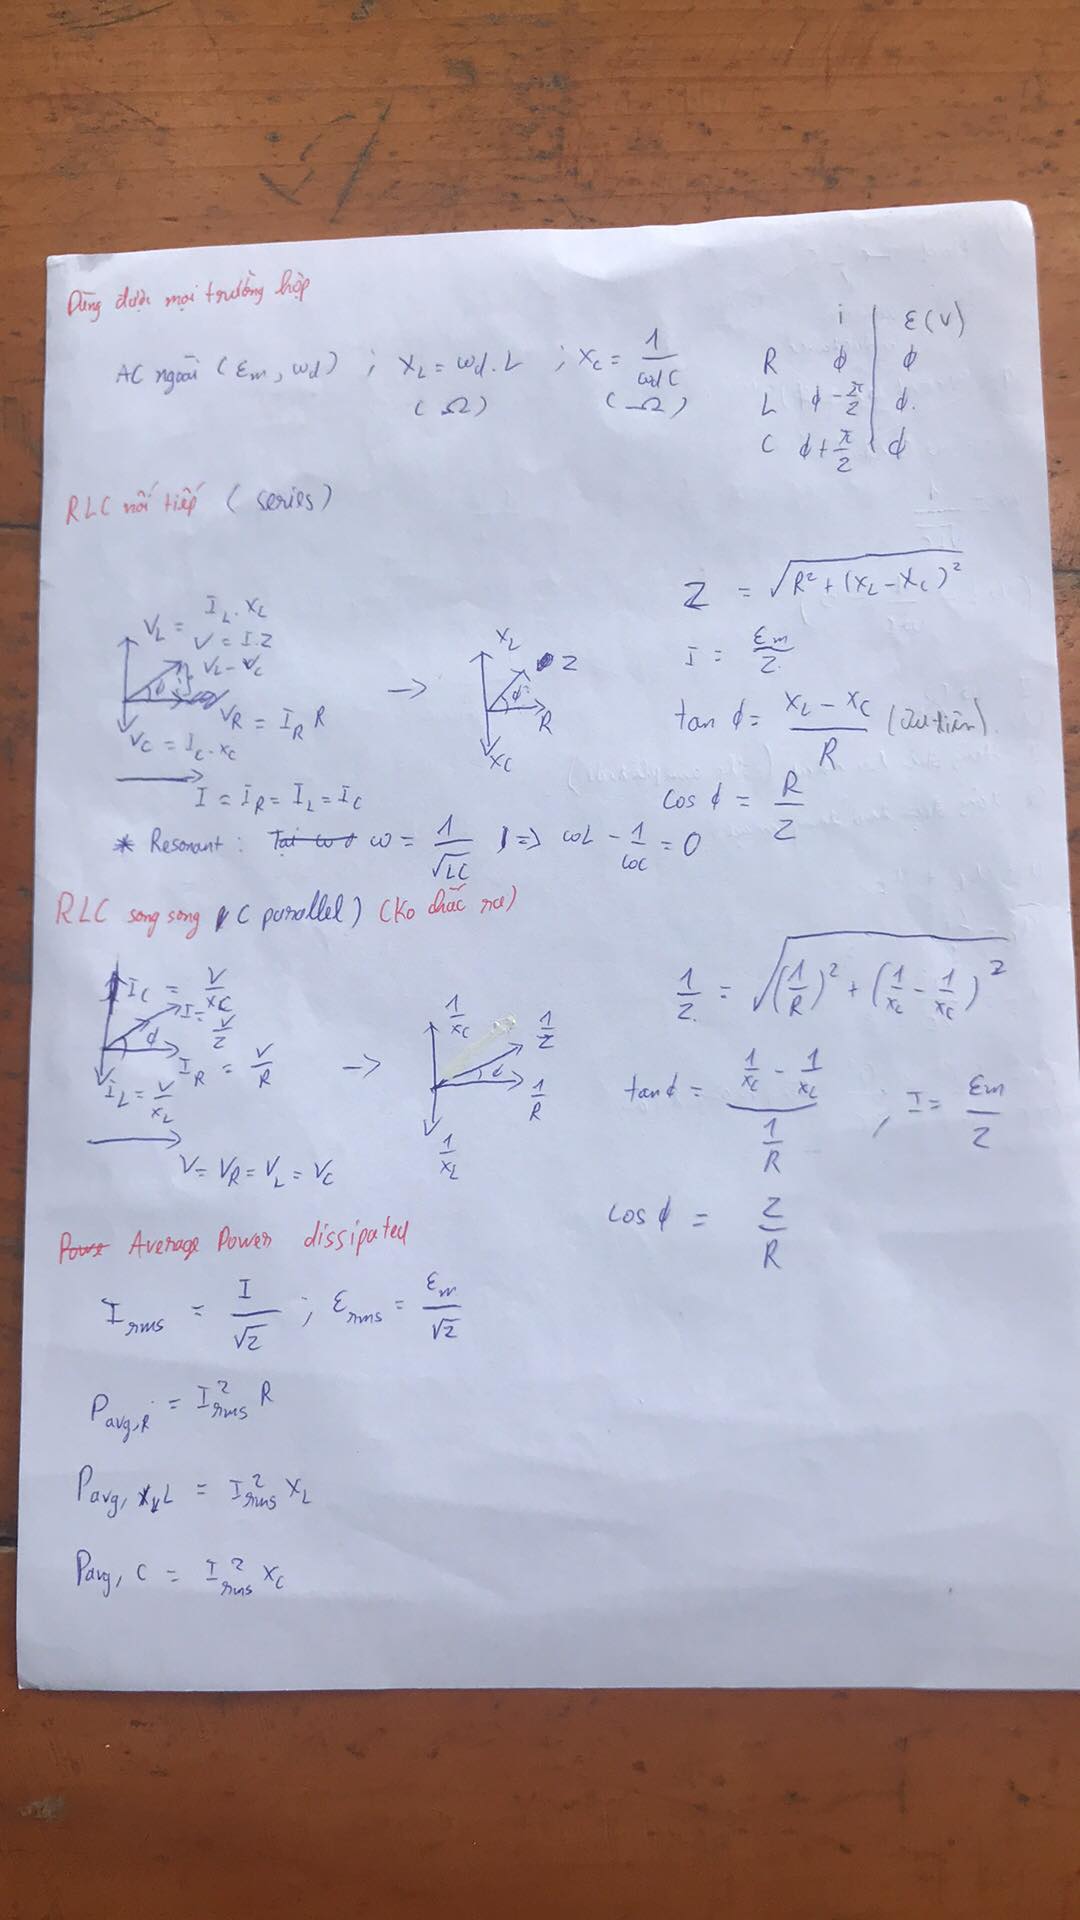 Dùng được mọi trường hợp
AC ngoài (εm, ωd) ; XL = ωd.L ; XC = 1/(ωdC)
(Ω) (Ω)
i | ε(V)
R ϕ | ϕ
L ϕ - π/2 | ϕ.
C ϕ + π/2 | ϕ
RLC nối tiếp (series)
VL = IL.XL
V = I.Z
VL - VC
ϕ
VR = IR R
VC = IC.XC
I = IR = IL = IC
→
XL
Z
ϕ
R
XC
Z = √(R² + (XL - XC)²)
I = εm/Z
tan ϕ = (XL - XC)/R (ưu tiên).
cos ϕ = R/Z
* Resonant : Tại ω = 1/√LC => ωL - 1/(ωC) = 0
RLC song song (parallel) (Ko chắc ra)
IC = V/XC
I = V/Z
ϕ
IR = V/R
IL = V/XL
V = VR = VL = VC
→
1/XC
1/Z
ϕ
1/R
1/XL
1/Z = √((1/R)² + (1/XL - 1/XC)²)
tan ϕ = (1/XC - 1/XL)/(1/R) ; I = εm/Z
cos ϕ = Z/R
Power Average Power dissipated
Irms = I/√2 ; εrms = εm/√2
Pavg,R = I²rms R
Pavg, L = I²rms XL
Pavg, C = I²rms XC